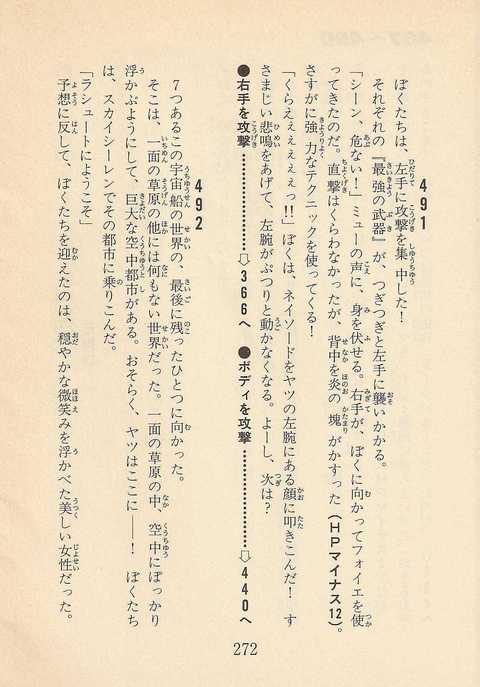 491
ぼくたちは、左手に攻撃を集中した！
それぞれの『最強の武器』が、つぎつぎと左手に襲いかかる。
「シーン、危ない！」ミューの声に、身を伏せる。右手が、ぼくに向かってフォイエを使
ってきたのだ。直撃はくらわなかったが、背中を炎の塊がかすった（HPマイナス12）。
さすがに強力なテクニックを使ってくる！
「くらえぇぇぇぇぇっ!!」ぼくは、ネイソードをヤツの左腕にある顔に叩きこんだ！　す
さまじい悲鳴をあげて、左腕がぷつりと動かなくなる。よーし、次は？
●右手を攻撃…………⇨366へ　●ボディを攻撃…………⇨440へ
492
7つあるこの宇宙船の世界の、最後に残ったひとつに向かった。
そこは、一面の草原の他には何もない世界だった。一面の草原の中、空中にぽっかり
浮かぶようにして、巨大な空中都市がある。おそらく、ヤツはここに――！　ぼくたち
は、スカイシーレンでその都市に乗りこんだ。
「ラシュートにようこそ」
予想に反して、ぼくたちを迎えたのは、穏やかな微笑みを浮かべた美しい女性だった。
272